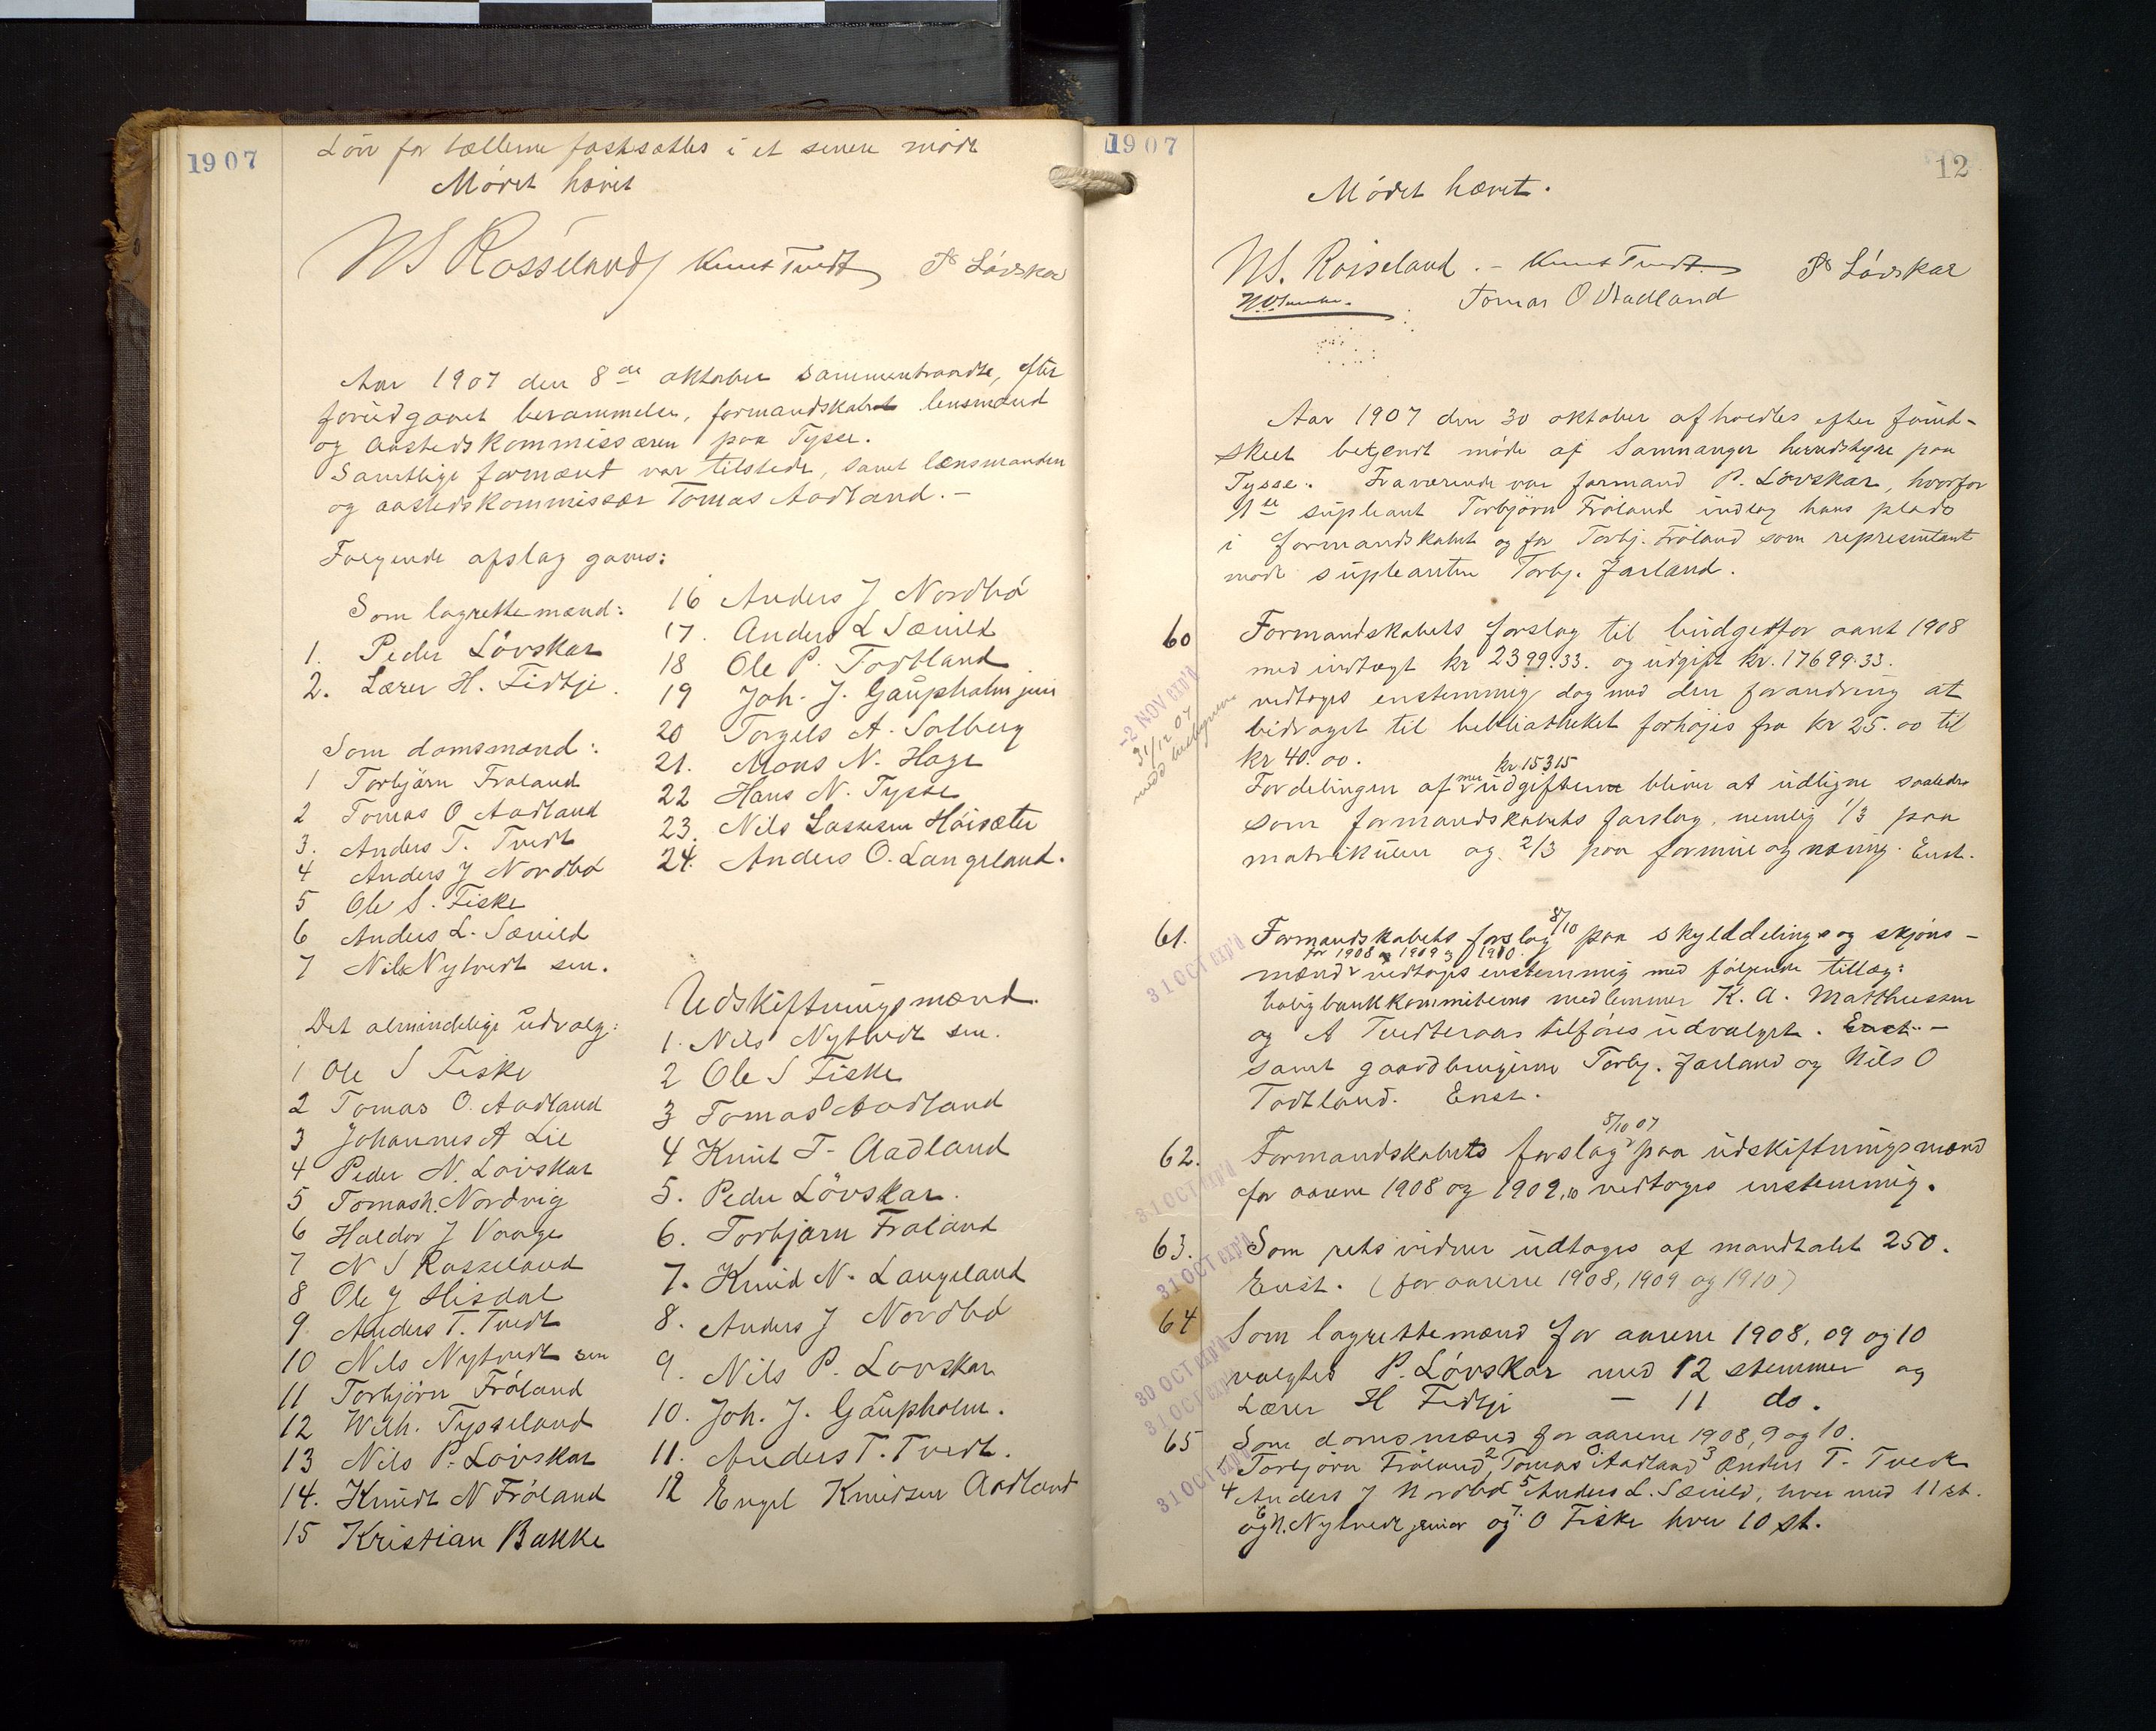 1907
Løn for tællerne fastsattes i et senere møde
Mødet hævet
NS Røsseland Knut Tvedt P Løvskar
Aar 1907 den 8de oktober sammentraadte, efter
forudgaaet berammelse, formandskabet lensmand
og aastedskommissæren paa Tysse.
Samtlige formænd var tilstede, samt lænsmanden
og aastedskommissær Tomas Aadland. -
Følgende afslag gaves:
Som lagrettemænd:
1. Peder Løvskar
2. Lærer H. Fidtje.
Som domsmænd:
1 Torbjørn Frøland
2 Tomas O Aadland
3. Anders T. Tvedt
4 Anders J Nordbø
5 Ole S. Fiske
6 Anders L. Sævild
7 Nils Nytvedt sen.
Det almindelige udvalg:
1 Ole S Fiske
2 Tomas O. Aadland
3 Johannes A Lie
4 Peder N. Løvskar
5 Tomas h. Nordvig
6 Haldor J Vaage
7 N S Røsseland
8 Ole J Hisdal
9. Anders T. Tvedt
10 Nils Nytvedt sen
11 Torbjörn Fröland
12 Wilh. Tysseland
13 Nils P. Lövskar
14. Knudt N Fröland
15 Kristian Bakke
16 Anders J Nordbø
17. Anders L Sævild
18 Ole P. Totland
19 Joh. J. Gaupholm jun
20 Torgels A. Solberg
21. Mons N. Hage
22 Hans N. Tysse
23. Nils Lassesen Høisæter
24. Anders O. Langeland.
Udskiftningsmænd.
1. Nils Nytvedt sen.
2 Ole S Fiske
3 Tomas O Aadland
4 Knut T- Aadland
5. Peder Lövskar.
6. Torbjørn Frøland
7. Knud N. Langeland
8. Anders J Nordbø
9. Nils P. Lovskar
10. Joh. J. Gaupholm.
11. Anders T. Tvedt.
12 Engel Knudsen Aadland
1907
12
Mødet hævet.
NS. Røisseland. - Knut Tvedt P Løvskar
Tomas O Aadland
Aar 1907 den 30 oktober afholdtes efter forud-
skeet betjendt møde af Samnanger herredstyre paa
Tysse. Fraværende var formand P. Løvskar, hvorfor
1ste supleant Torbjørn Frøland indtog hans plads
i formandskabet og for Torbj. Frøland som representant
mødte supleanten Torbj. Jarland.
60 Formandskabets forslag til budget for aaret 1908
med indtægt kr 2399.33. og udgift kr. 17699.33.
vedtoges enstemmig dog med den forandring at
bidraget til bibliotheket forhøjes fra kr 25.00 til
kr 40.00.
-2 NOV exp'd
31/12 07
kr 15315
Fordelingen af udgifterne bliver at udligne saaledes
som formandskabets forslag, nemlig 1/3 paa
matrikulen og 2/3 paa formue og næring. Enst.
61. Formandskabets forslag 8/10 paa skylddelings og skjøns-
for 1908 1909 og 1910.
mænd vedtoges enstemmig med følgende tillæg:
boligbankkommiteens medlemmer K. A. Matthussen
og A Tvedteraas tilføres udvalget. Enst. -
samt gaardbrugerne Torbj. Jarland og Nils O
Todtland. Enst.
31 OCT exp'd
62. Formandskabets forslag 8/10 07 paa udskiftningsmænd
for aarene 1908 og 1909, 10 vedtoges enstemmig.
31 OCT exp'd
63. Som retsvidner udtoges af mandtalet 250.
Enst. (for aarene 1908, 1909 og 1910)
31 OCT exp'd
64 Som lagrettemænd for aarene 1908, 09 og 10
valgtes P. Løvskar med 12 stemmer og
Lærer H Fidtje - 11 do.
30 OCT exp'd
31 OCT exp'd
65 Som domsmænd for aarene 1908, 9 og 10.
1 Torbjörn Fröland, 2 Tomas O Aadland 3 Anders T. Tvedt
4 Anders J Nordbø 5 Anders L. Sævild, hver med 11 st.
6 og N. Nytvedt senior og 7. O Fiske hver 10 st.
31 OCT exp'd